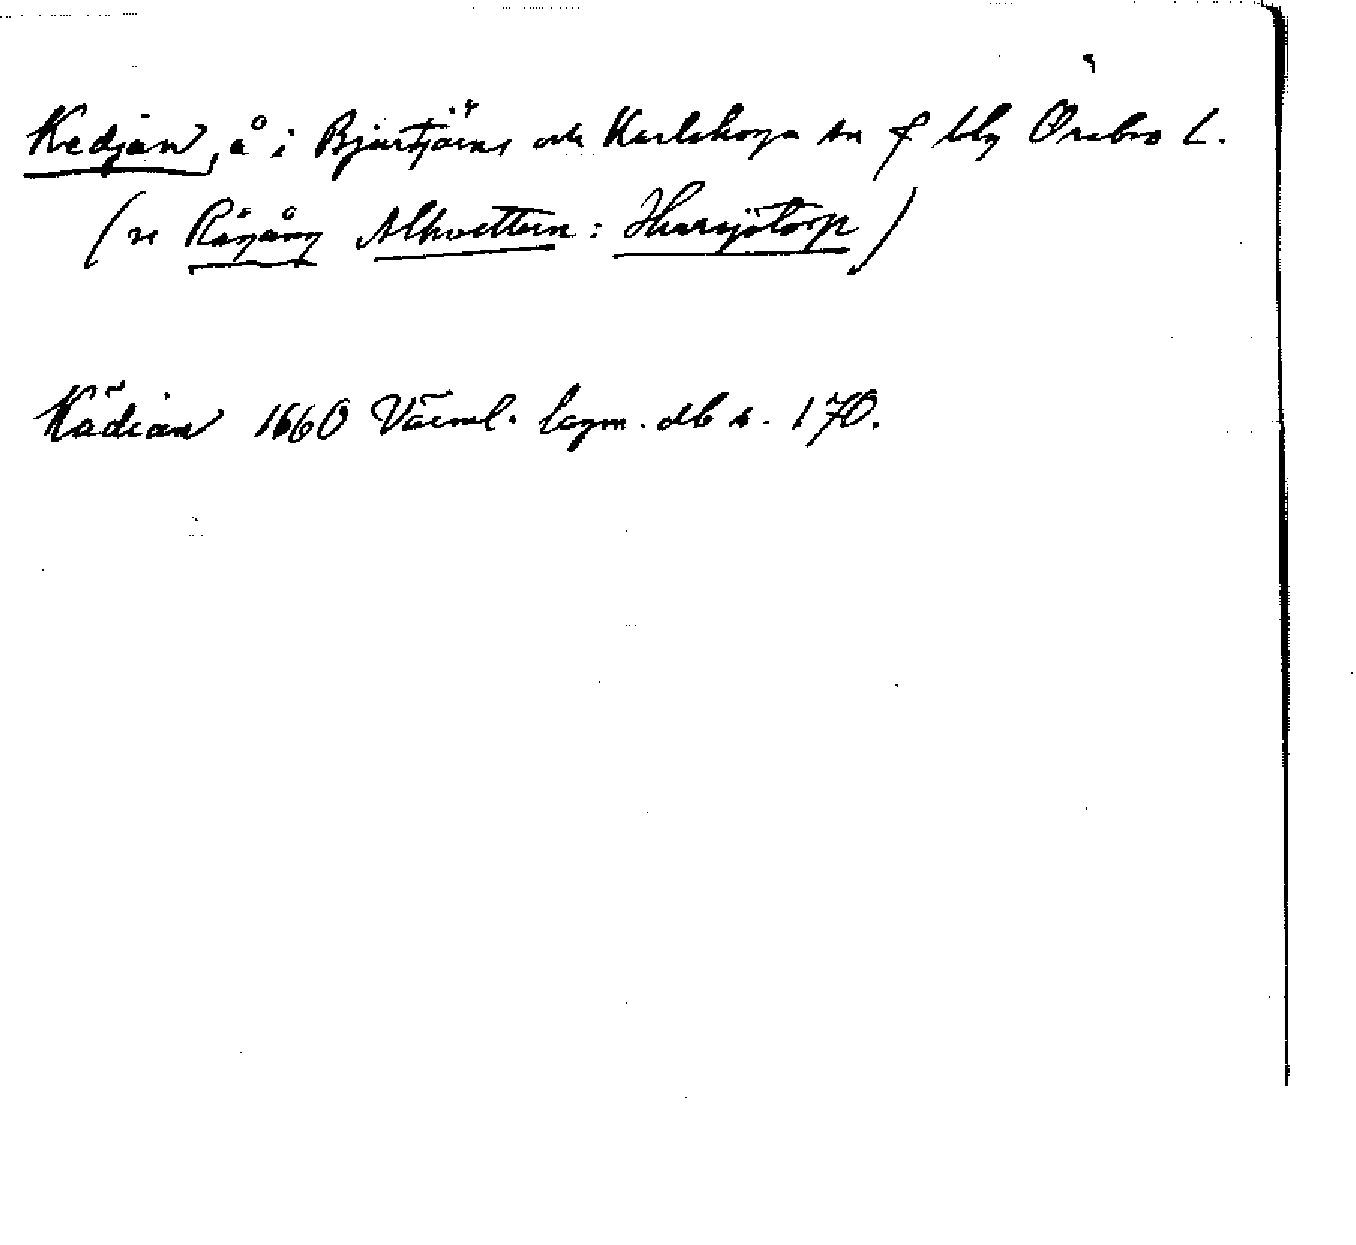 Kedjan, å i Bjurtjärns och Karlskoga sn f bbg Örebro L.
(se Rågång Alkvettern: Hursjötorp)
Kädian 1660 Värml. lagm. db s. 170.